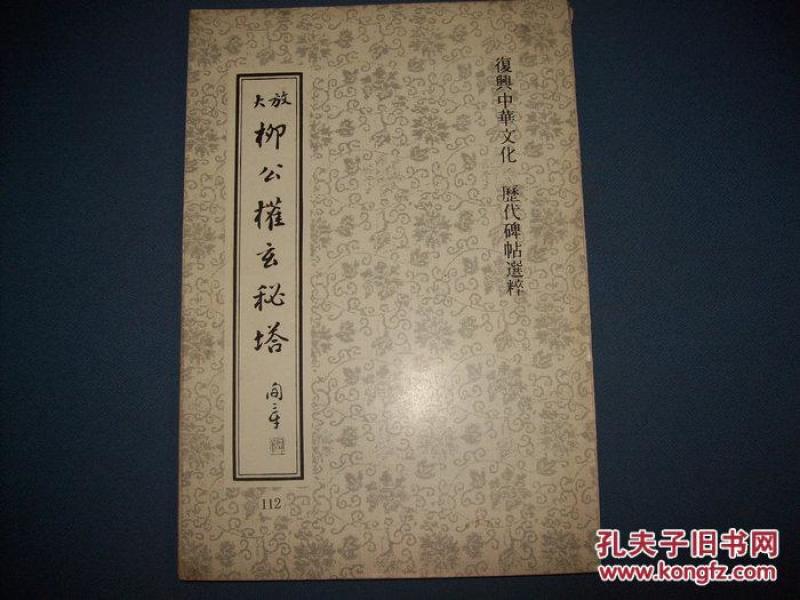 復興中華文化 歷代碑帖選粹
放大
柳公權玄秘塔
112
孔夫子旧书网
www.kongfz.com